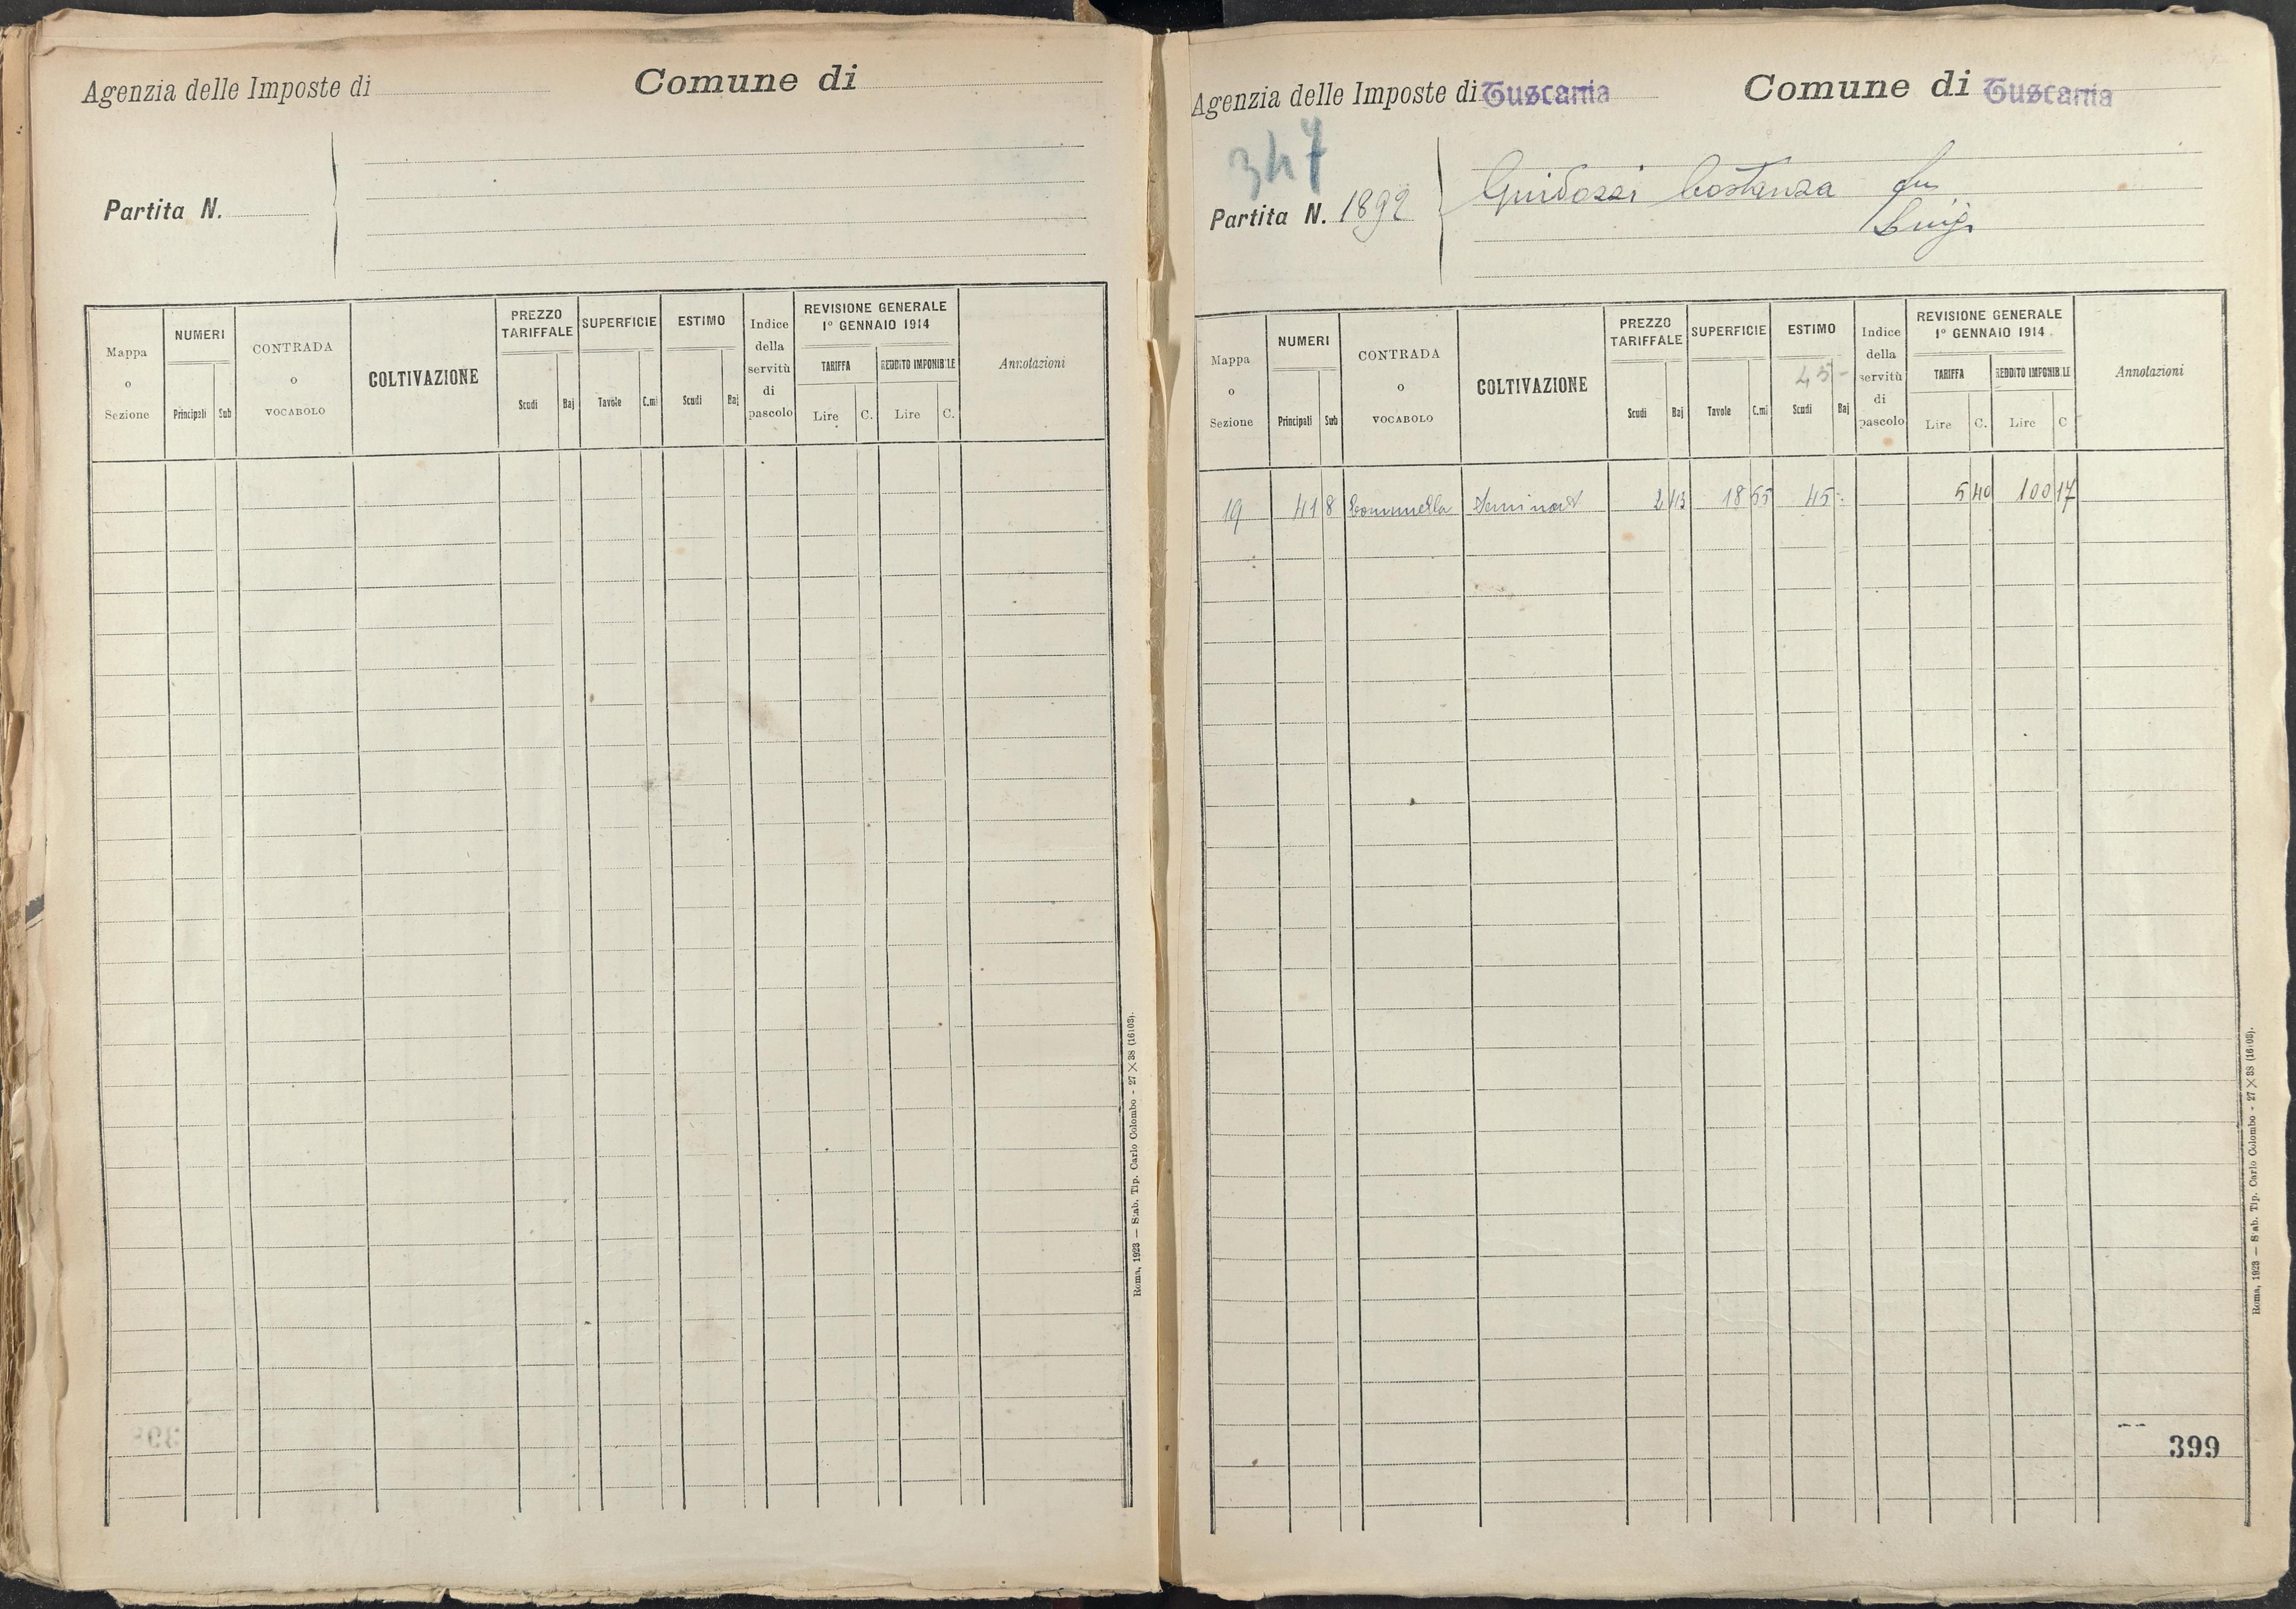 Agenzia delle Imposte di
Comune di
Partita N.
Mappa o Sezione
NUMERI
Principali Sub
CONTRADA o VOCABOLO
COLTIVAZIONE
PREZZO TARIFFALE
Scudi Baj
SUPERFICIE
Tavole C.mi
ESTIMO
Scudi Baj
Indice della servitù di pascolo
REVISIONE GENERALE
1º GENNAIO 1914
TARIFFA
Lire C.
REDDITO IMPONIBILE
Lire C.
Annotazioni
Roma, 1923 — Stab. Tip. Carlo Colombo - 27 X 38 (16103).
Agenzia delle Imposte di Tuscania
Comune di Tuscania
347
Partita N. 1892
Guidozzi Costanza fu
Luigi
Mappa o Sezione
NUMERI
Principali Sub
CONTRADA o VOCABOLO
COLTIVAZIONE
PREZZO TARIFFALE
Scudi Baj
SUPERFICIE
Tavole C.mi
ESTIMO
45-
Scudi Baj
Indice della servitù di pascolo
REVISIONE GENERALE
1º GENNAIO 1914
TARIFFA
Lire C.
REDDITO IMPONIBILE
Lire C
Annotazioni
19 418 Comunella 18 55 45 - 5 40 100 17
399
Roma, 1923 — Stab. Tip. Carlo Colombo - 27 X 38 (16103).